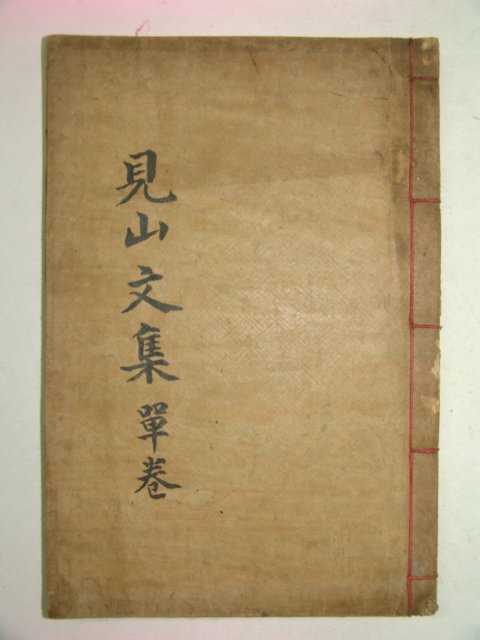 見山文集單卷